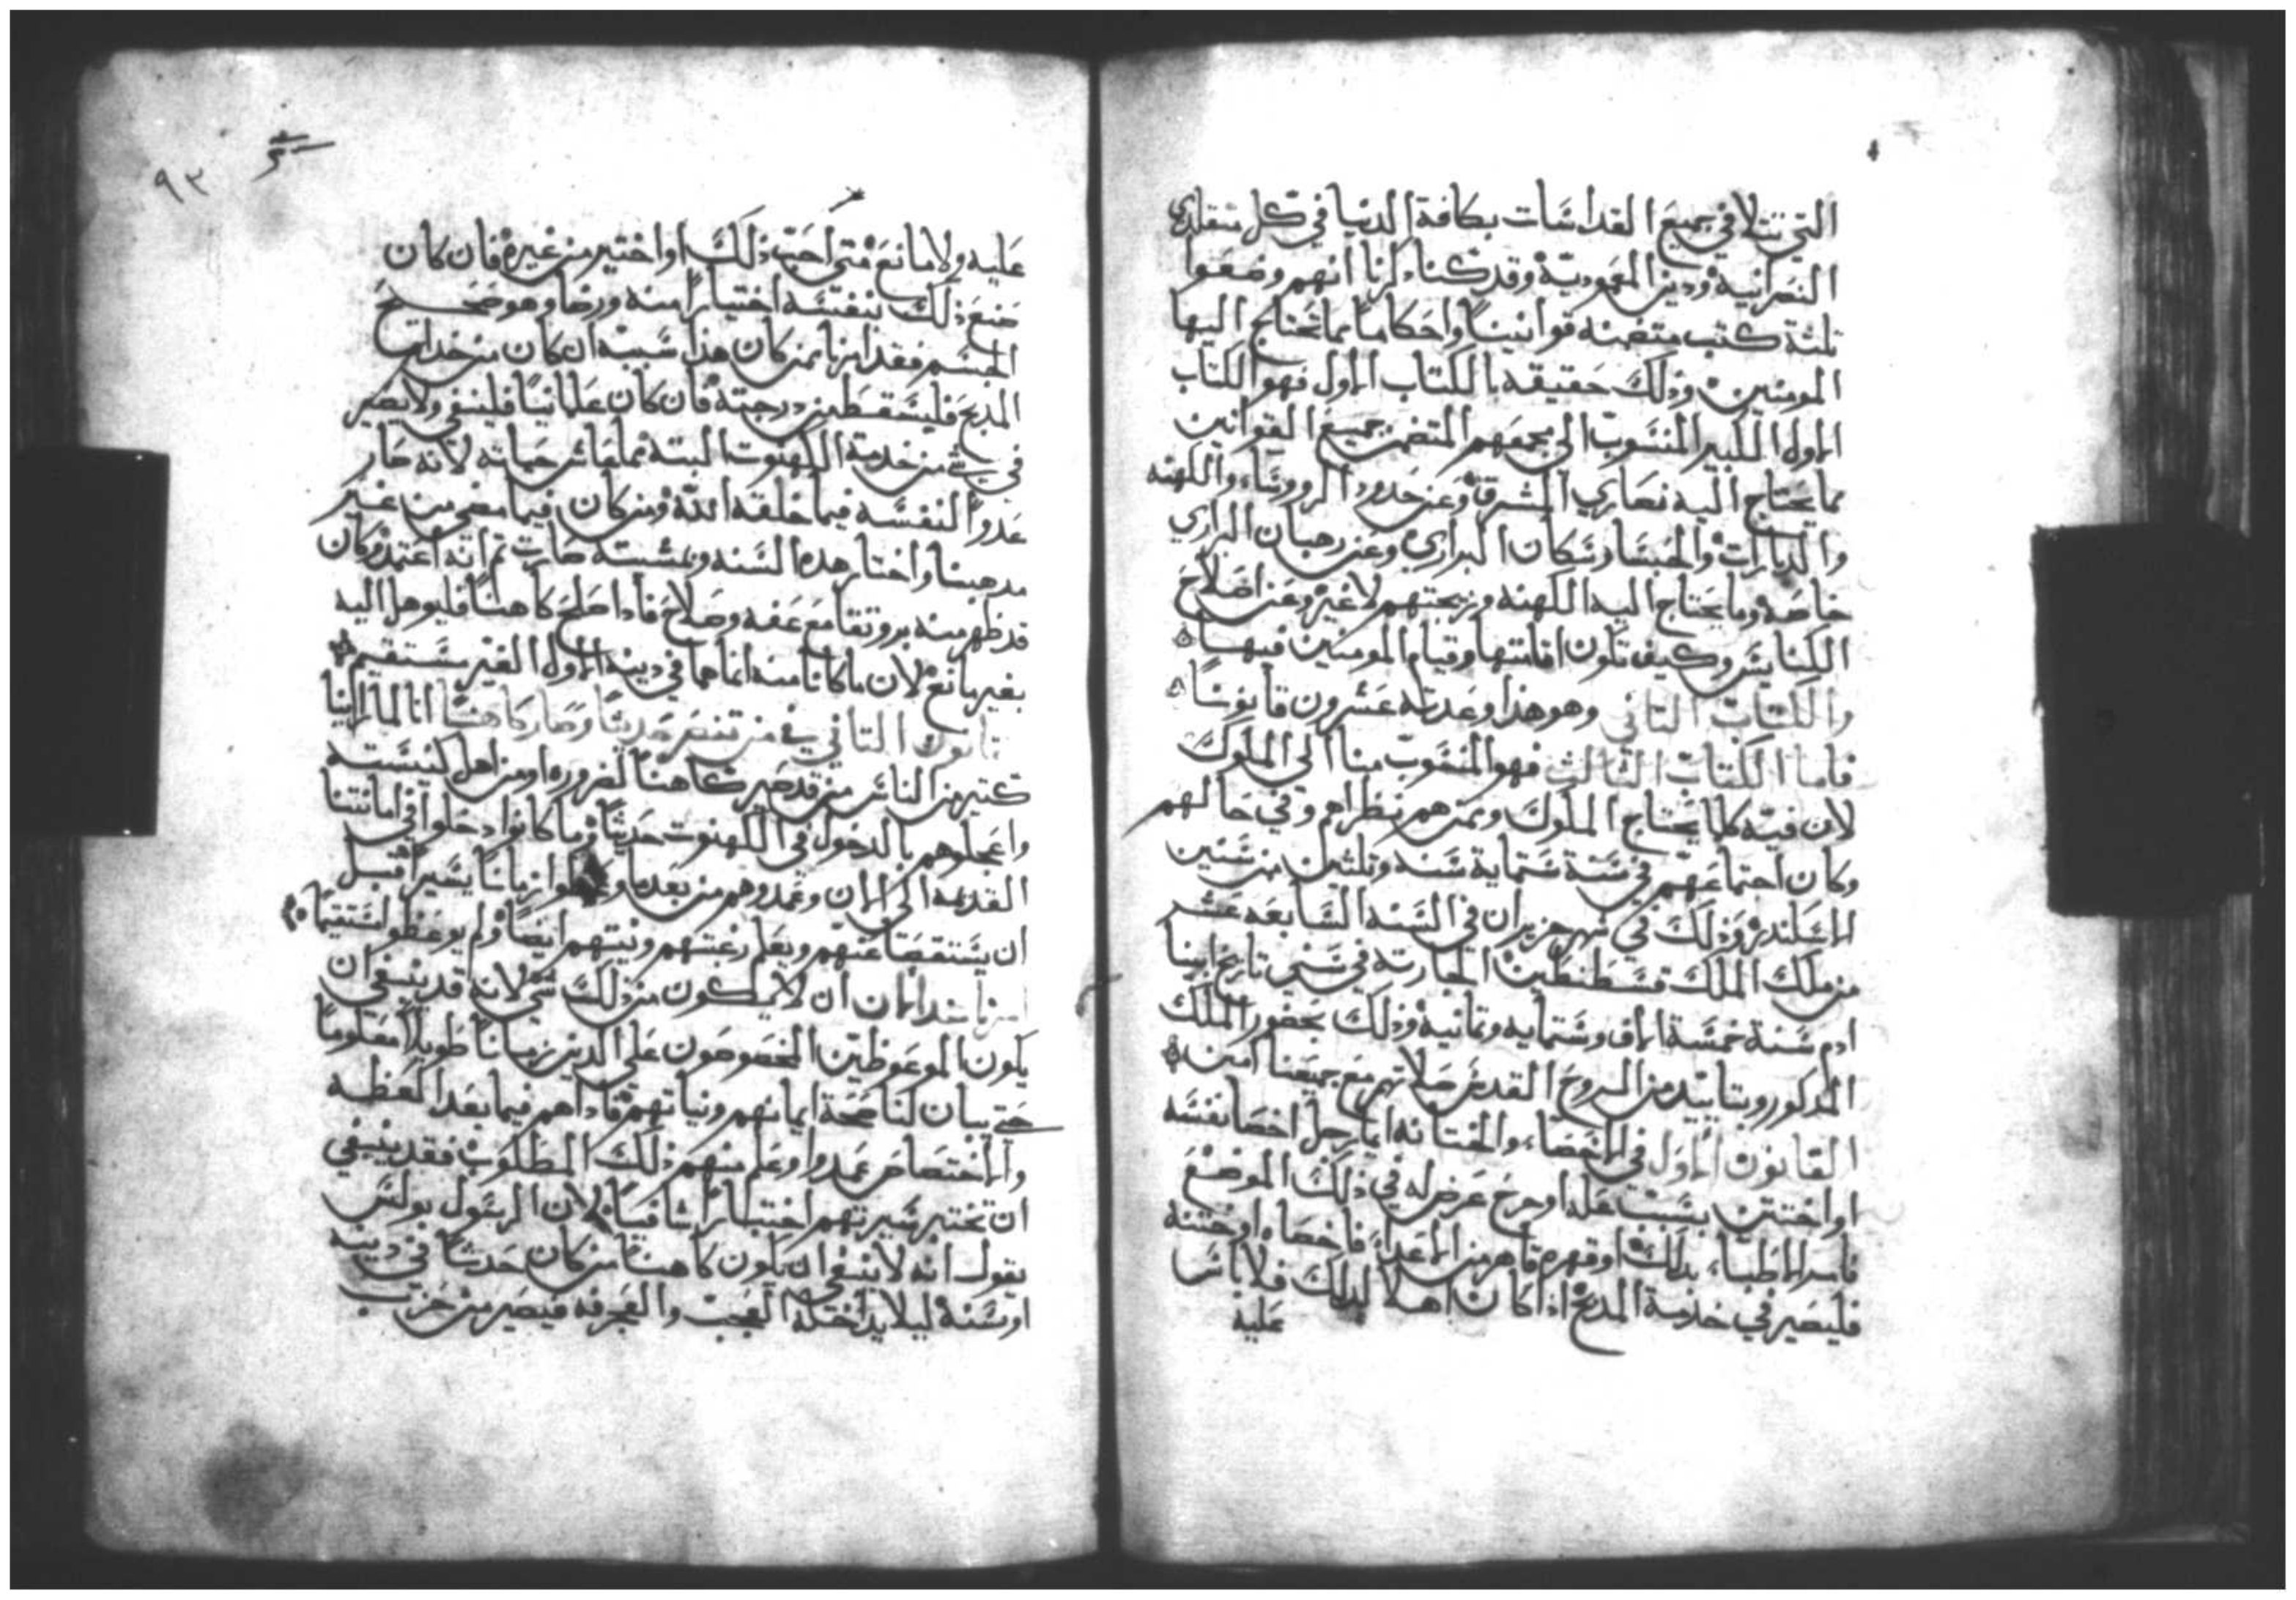 التي تتلا في جميع القداسات بكافة الدنيا في كل متقلدي
النصرانية ودين المعمودية وقد كنا ذكرنا انهم وضعوا
ثلثة كتب متضمنه قوانينًا واحكامًا مما تحتاج اليها
المومنين وذلك حقيقه بالكتاب الاول فهو الكتاب
الاول الكبير المنسوب الى مجمعهم المتضمن جميع القوانين
مما يحتاج اليه نصاري المشرق وعن حدود الروسا والكهنه
والديارات والحبسا وسكان البراري وعن رهبان البراري
خاصه وما يحتاج اليه الكهنه وزيجتهم لا غير وعن اصلاح
الكنايس وكيف تكون اقامتها وقيام المومنين فيها
والكتاب الثاني وهو هذا وعدته عشرون قانونًا
فاما الكتاب الثالث فهو المنسوب منا الى الملوك
لان فيه كلما يحتاج الملوك ومن هم نظراهم وفي حالهم
وكان اجتماعهم في سنة ستماية سنه وثلثين من سنين
الاسكندر وذلك في شهر حزيران في السنه السابعه عشر
من ملك الملك قسطنطين الجاريه في سني تاريخ ابينا
ادم سنة خمسة الاف وستمايه وثمانية وذلك بحضور الملك
المذكور وبتاييد من الروح القدس صلاتهم مع جميعنا امين
القانون الاول في الاخصاء والختانه ايما رجل اخصا نفسه
او اختتن بسبب عله او جرح عرض له في ذلك الموضع
فامر الاطباء بذلك او قهره قاهر من الاعداء فاخصاه او ختنه
فليصير في خدمة المذبح اذا كان اهلا لذلك فلا باس
عليه
٩٣
عليه ولا مانع متي احب ذلك او اختير من غيره فان كان
صنع ذلك بنفسه اختيارًا منه ورضا وهو صحيح
الجسم فقد امرنا بمن كان هذا سبيله ان كان من خدام
المذبح فليسقط من درجته فان كان علمانيًا فلينفي ولا يصير
في شي من خدمة الكهنوت البته مما عاش حياته لانه صار
عدوًا لنفسه فيما خلقه الله ومن كان فيما مضى من غير
مدهبنا واختار هده السنه وبمشيته صارت ثم انه اعتمد وكان
قد ظهر منه بر وتقا مع عفه وصلاح فاذا صلح كاهنًا فليوهل اليه
بغير مانع لان ما كانا منه انما هما في دينه الاول الغير مستقيم
القانون الثاني في من تنصر حديثًا وصار كاهنًا انا لما راينا
كتير من الناس من قد صير كاهنًا لضروره او من اهل كنيسته
واعجلوهم بالدخول في الكهنوت حديثًا وما كانوا دخلوا في امانتنا
القديمه الى الان وعمدوهم من بعد ما زمانًا يسيرًا قبل
ان يستقصا عنهم ويعلم رغبتهم ونيتهم ايضًا ولم يوعظوا مستقيمًا
امرنا منذ الان ان لا يكون من ذلك شي لانه قد ينبغي ان
يكون الموعوظين المخصوصون على الدين زمانًا طويلًا معلومًا
حتي يبان لنا صحة ايمانهم ونياتهم فاذا هم فيما بعد العظه
والاختصاص عمدوا وعلم منهم ذلك المطلوب فقد ينبغي
ان تختبر سيرتهم اختبارًا شافيًا لان الرسول بولس
يقول انه لا ينبغي ان يكون كاهنًا من كان حدثًا في دينه
او سنه ليلا يداخله العجب والعجرفه فيصير من حزب